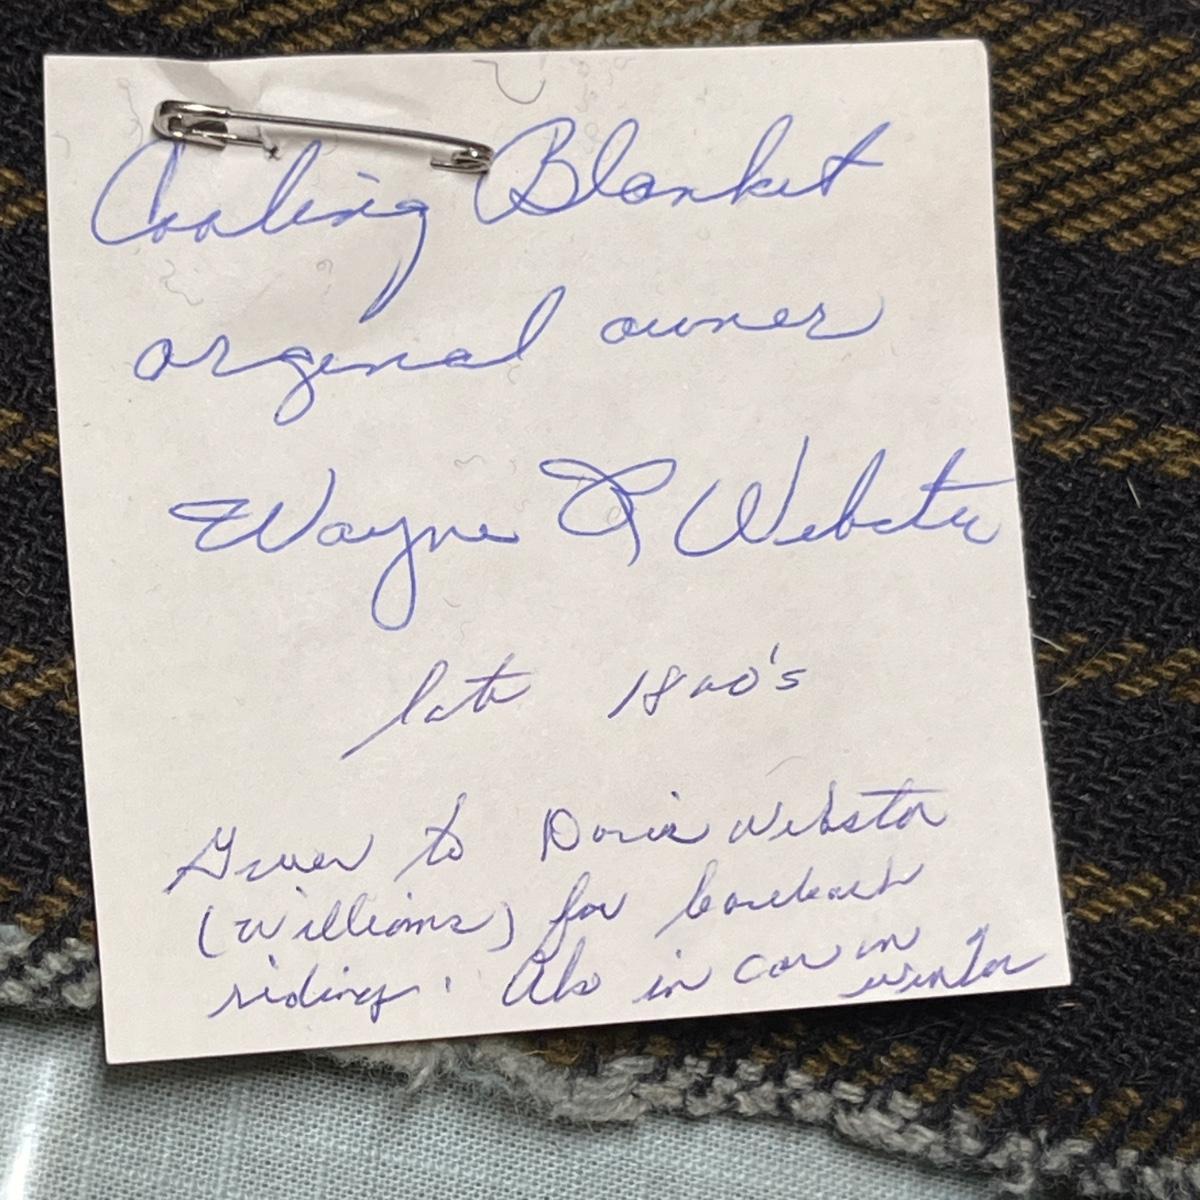 Cooling Blanket
orgenal owner
Wayne L Webster
late 1800's
Given to Doris Webster
(Williams) for bareback
riding. Also in car in
winter